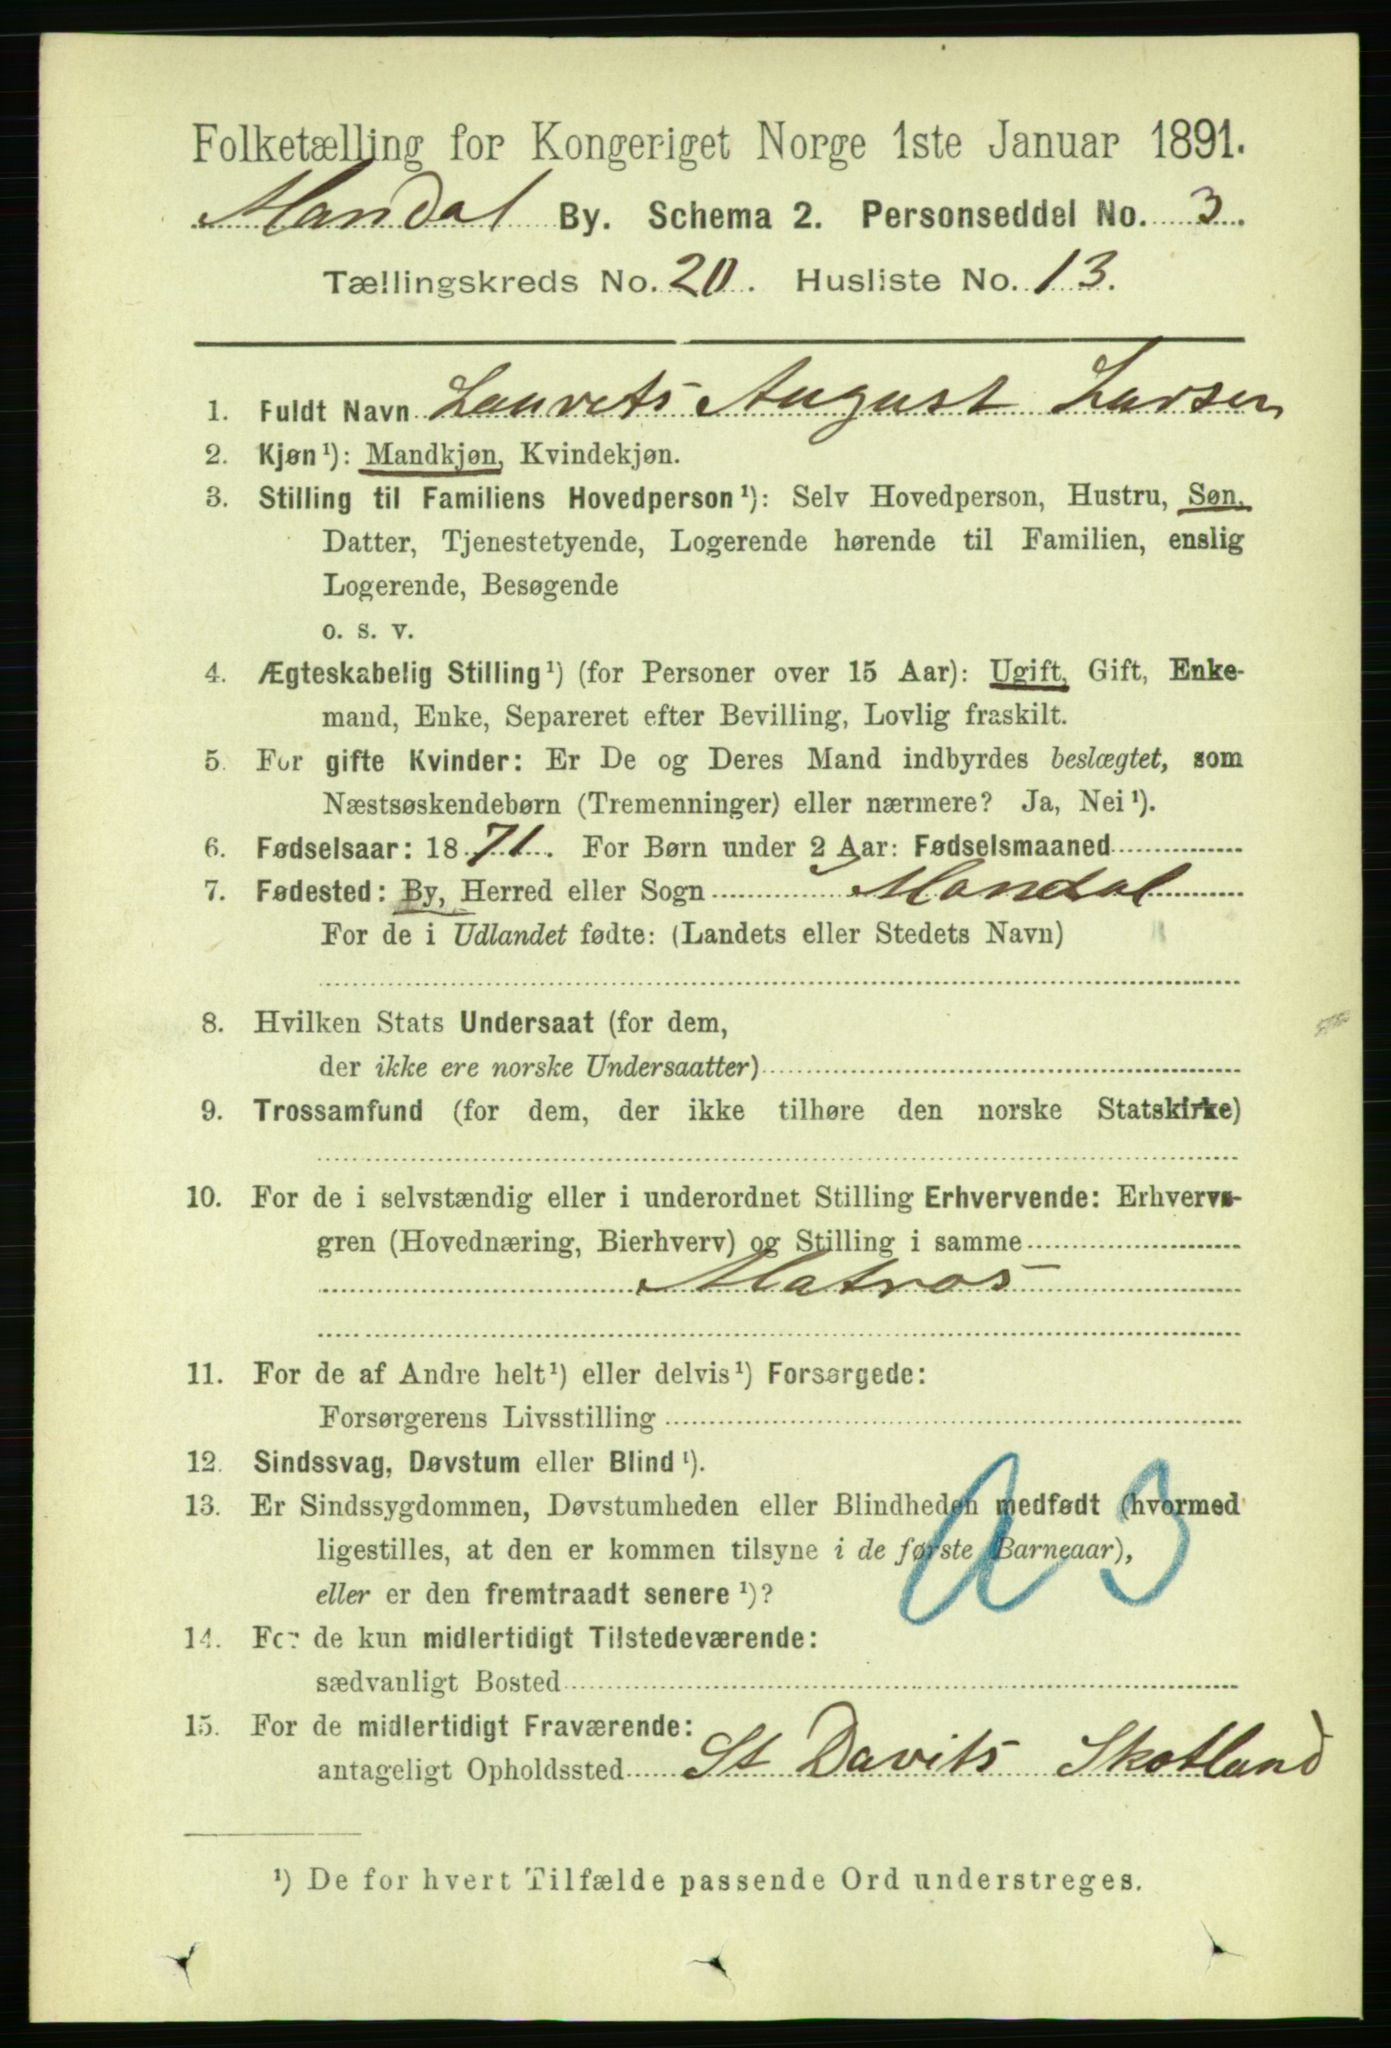 Folketælling for Kongeriget Norge 1ste Januar 1891.
Mandal By. Schema 2. Personseddel No. 3.
Tællingskreds No. 20. Husliste No. 13.
1. Fuldt Navn Laurets August Larsen
2. Kjøn¹): Mandkjøn, Kvindekjøn.
3. Stilling til Familiens Hovedperson¹): Selv Hovedperson, Hustru, Søn,
Datter, Tjenestetyende, Logerende hørende til Familien, enslig
Logerende, Besøgende
o. s. v.
4. Ægteskabelig Stilling¹) (for Personer over 15 Aar): Ugift, Gift, Enke-
mand, Enke, Separeret efter Bevilling, Lovlig fraskilt.
5. For gifte Kvinder: Er De og Deres Mand indbyrdes beslægtet, som
Næstsøskendebørn (Tremenninger) eller nærmere? Ja, Nei¹).
6. Fødselsaar: 1871. For Børn under 2 Aar: Fødselsmaaned
7. Fødested: By, Herred eller Sogn Mandal
For de i Udlandet fødte: (Landets eller Stedets Navn)
8. Hvilken Stats Undersaat (for dem,
der ikke ere norske Undersaatter)
9. Trossamfund (for dem, der ikke tilhøre den norske Statskirke)
10. For de i selvstændig eller i underordnet Stilling Erhvervende: Erhvervs-
gren (Hovednæring, Bierhverv) og Stilling i samme
Matros
11. For de af Andre helt¹) eller delvis¹) Forsørgede:
Forsørgerens Livsstilling
12. Sindssvag, Døvstum eller Blind¹).
13. Er Sindssygdommen, Døvstumheden eller Blindheden medfødt (hvormed
ligestilles, at den er kommen tilsyne i de første Barneaar),
eller er den fremtraadt senere¹)?
14. For de kun midlertidigt Tilstedeværende:
sædvanligt Bosted
15. For de midlertidigt Fraværende:
antageligt Opholdssted St Davits Skotland
¹) De for hvert Tilfælde passende Ord understreges.